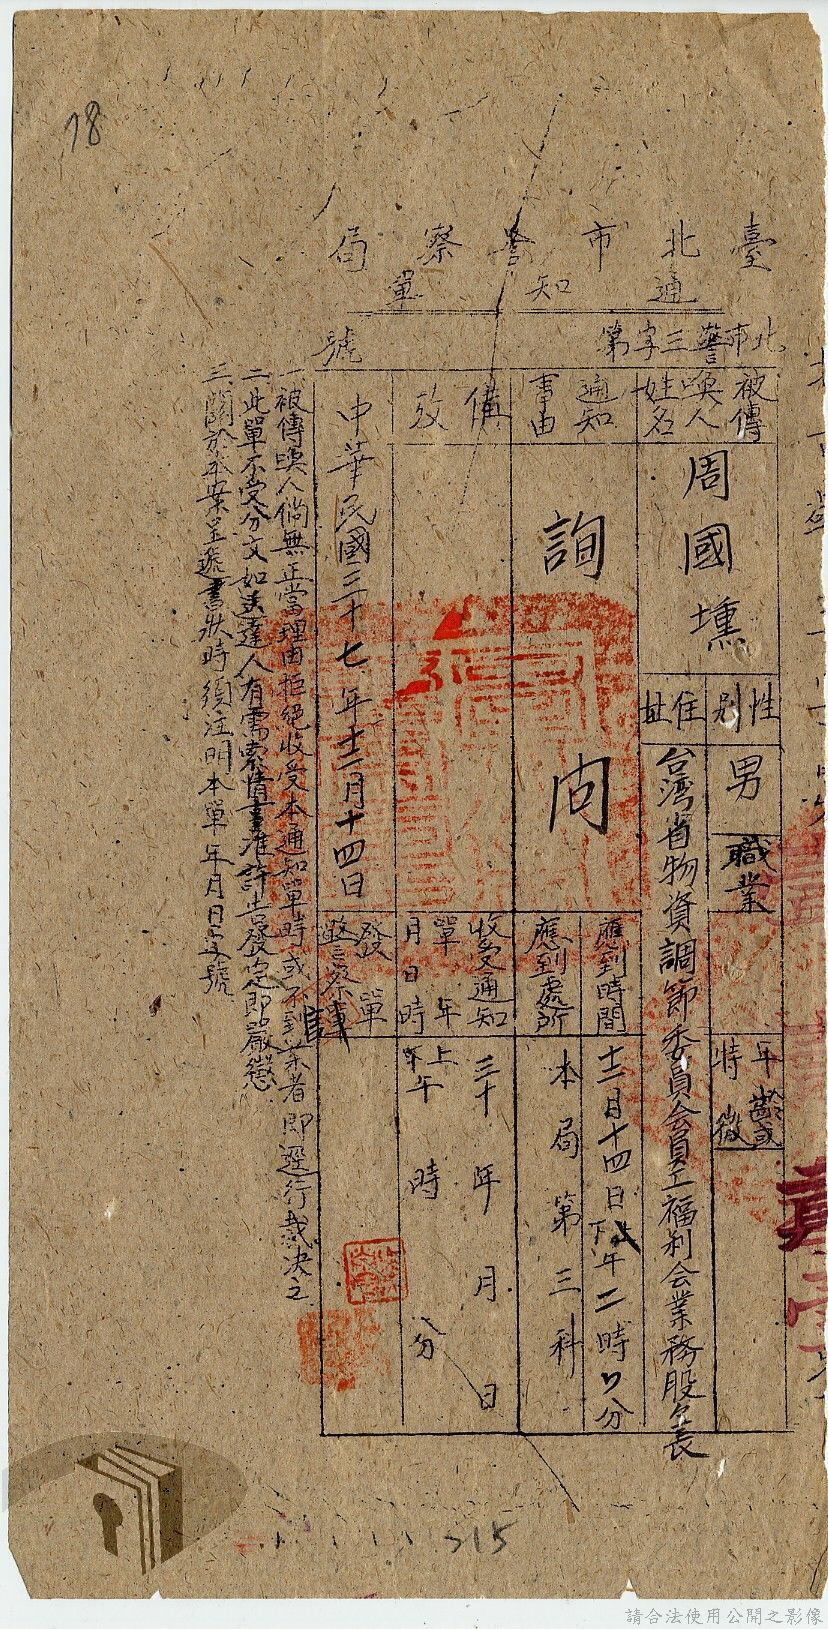 78
臺北市警察局
通知單
北市警三字第 號
被傳喚人姓名
周國壎
性別
男
職業
年齡或特徵
住址
台灣省物資調節委員會員工福利會業務股股長
通知事由
詢問
應到時間
十二月十四日下午二時 分
應到處所
本局第三科
備攷
收受通知單年月日時
三十 年 月 日
上午下午 時 分
中華民國三十七年十二月十四日
發單警察
一、被傳喚人倘無正當理由拒絕收受本通知單時或不到案者即逕行裁決之
二、此單不受分文如送達人有需索情事准許告發定即嚴懲
三、關於本案呈遞書狀時須注明本單年月日字號
715
請合法使用公開之影像